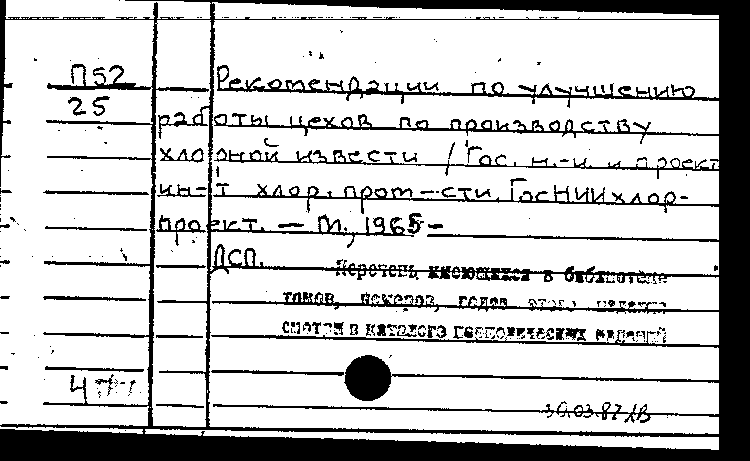 П52
25
Рекомендации по улучшению
работы цехов по производству
хлорной извести / Гос. н.-и. и проект
ин-т хлор. пром-сти. ГосНИИхлор-
проект. — М., 1965-
ДСП.
Перечень имеющихся в библиотеке
томов, номеров, годов этого издания
смотри в каталоге периодических изданий
30.03.87